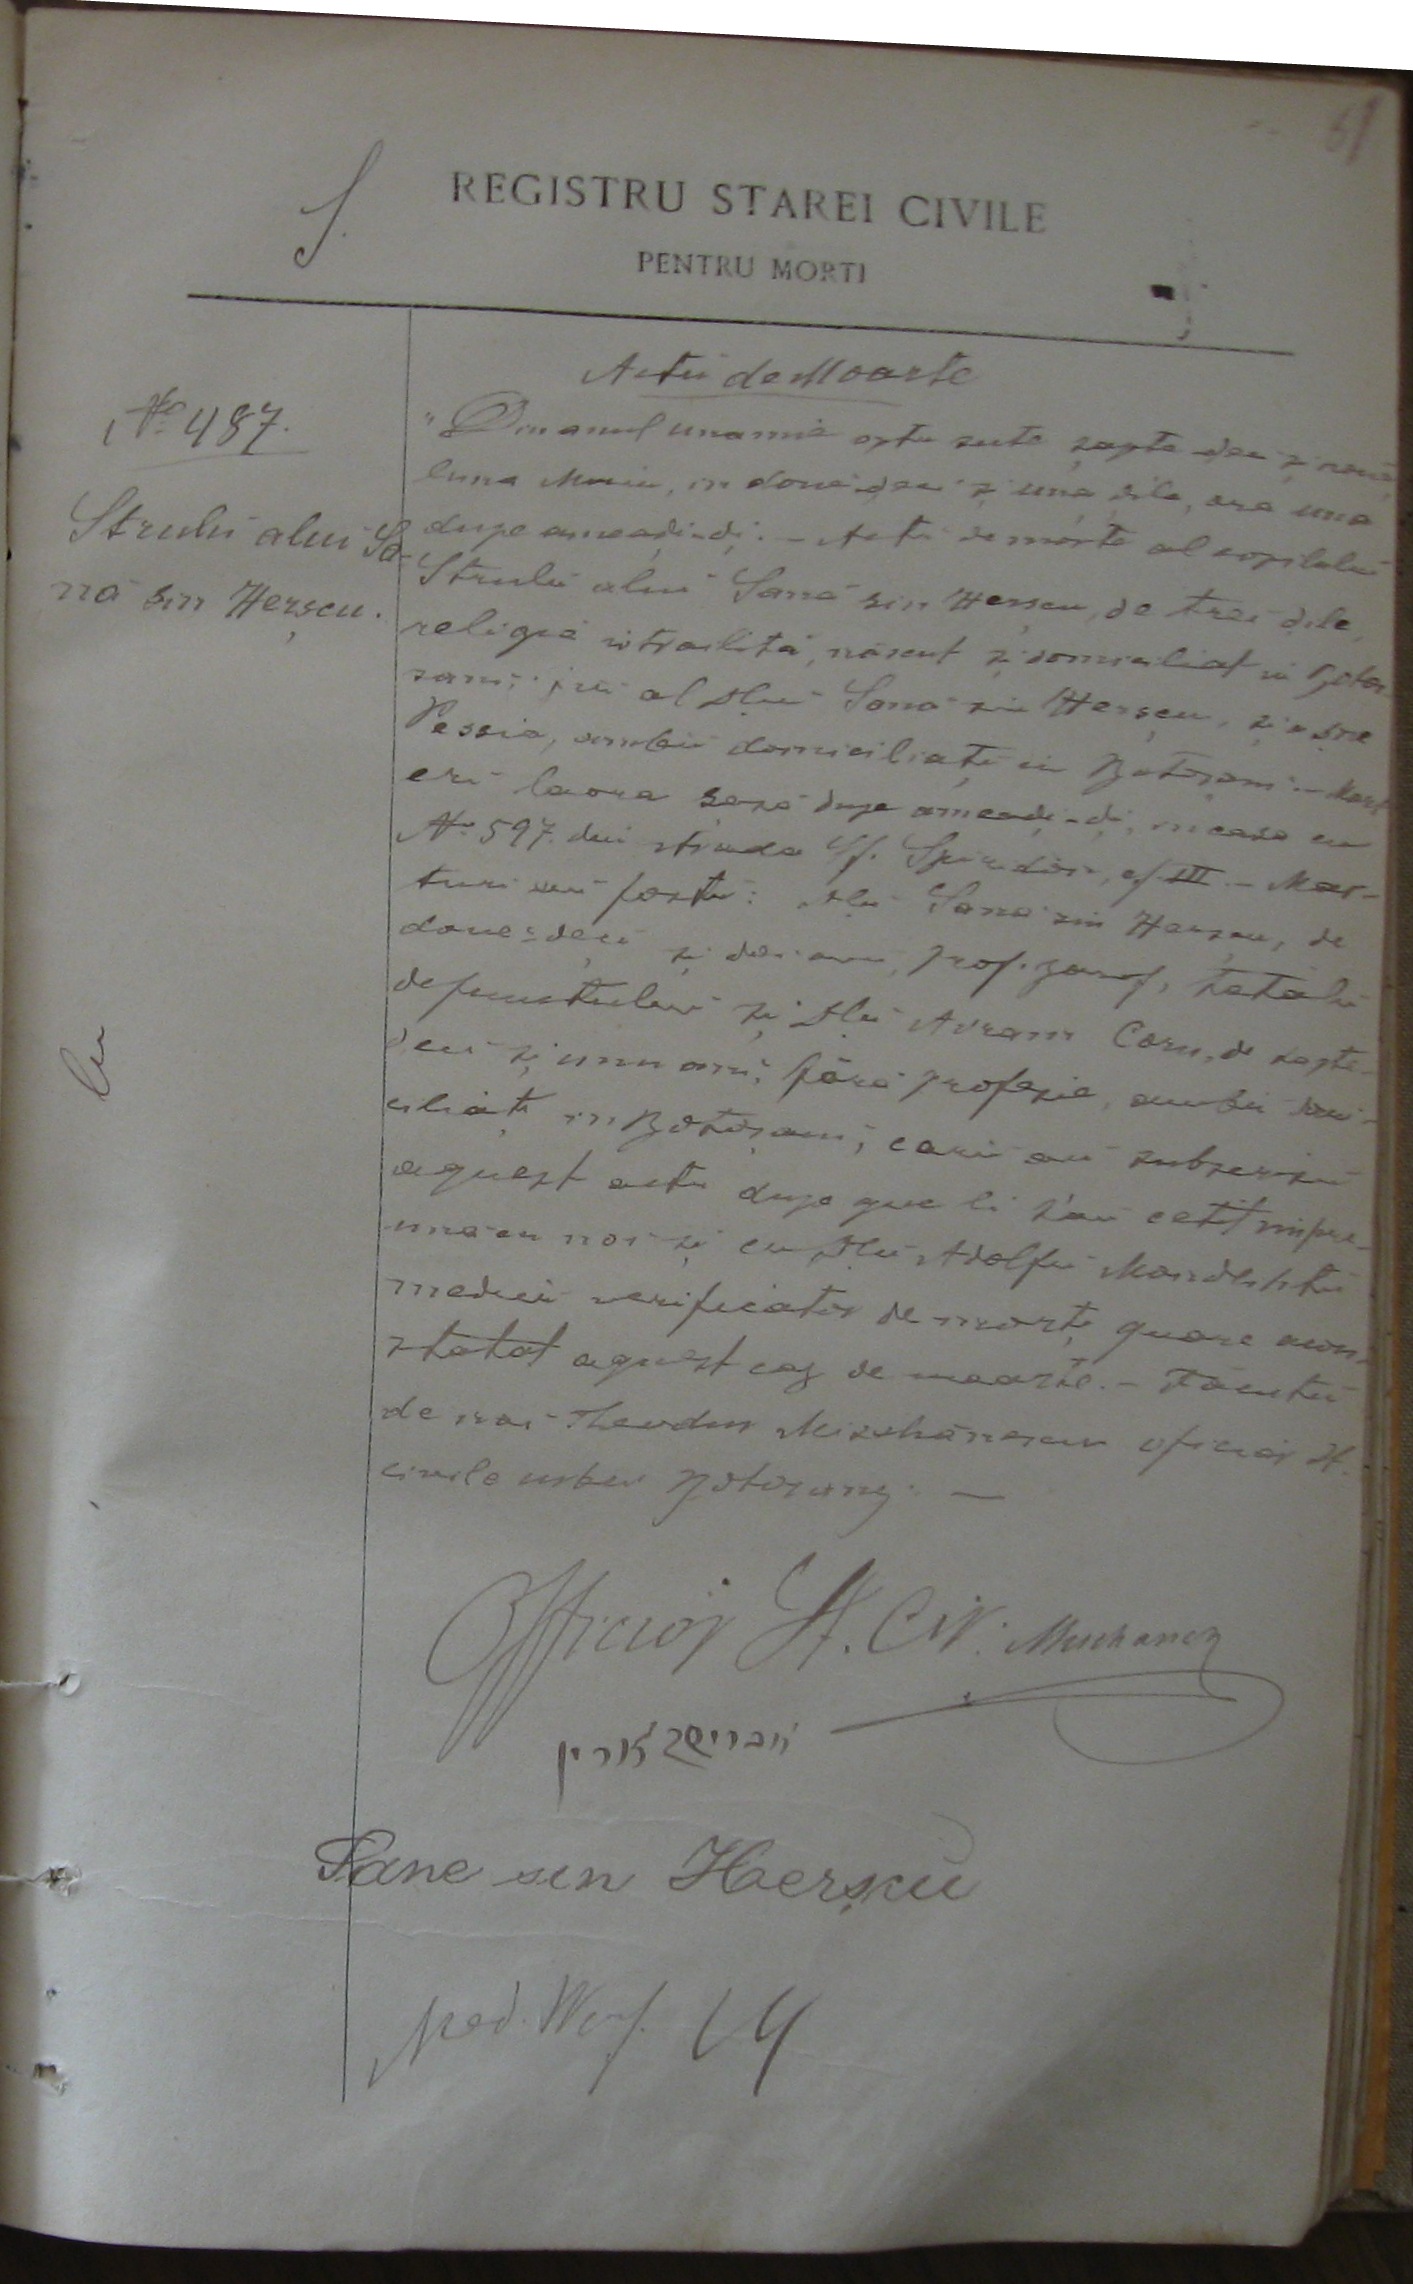 61
S.
REGISTRU STAREI CIVILE
PENTRU MORTI
No 487.
Strulŭ alui Sa-
nă sin Herșcu.
Actŭ de Moarte
Din anul una mie optu sute șapte deci și nouă
luna Maiu, in doue deci și una dile, ora una
dupe ameadi-di. — Actŭ de mórte al copilului
Strulŭ alui Sană sin Herșcu, de trei dile,
religie israelită, născut și domiciliat in Boto-
sani; fiŭ al Dlui Sană sin Herșcu, și a șoe
Pessia, ambii domiciliați in Botoșani. — Mort
eri la ora șasă dupe ameadi-di, in casa cu
No 597. din strada Sf. Spiridon, of. III. — Mar-
turi aŭ fostŭ: Dlŭ Sana sin Herșcu, de
doue-deci și doi ani, prof. , tatălŭ
defunctului și Dlŭ Avram Corn, de șapte-
deci și unu ani, fără profesie, ambii domi-
ciliați in Botoșani, carii aŭ subscrisŭ
aquest actŭ dupe que li s'aŭ cetit impre-
ună cu noi și cu Dlŭ Adolfŭ
medicŭ verificator de morți, quare a con-
statat aquest caz de moarte. — Făcutŭ
de noi Theodor oficier St.
civile urbei Botoșany. —
Officior St. Civ.
אברהם קארין
Sane sin Herșcu
Med. Werf.